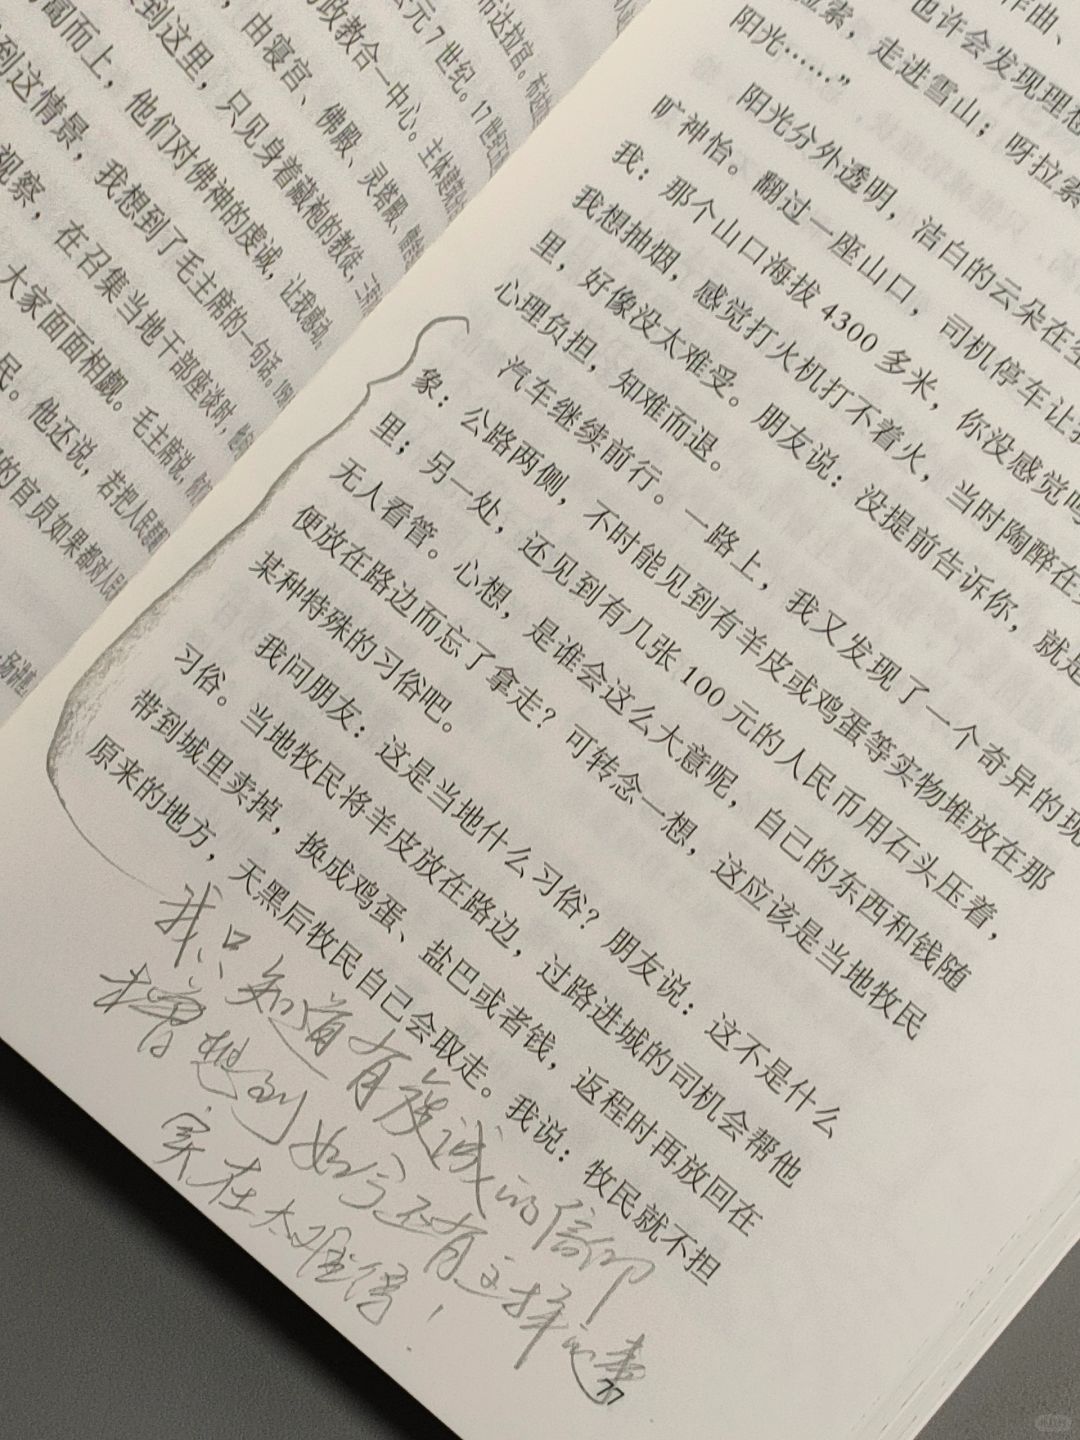 布达拉宫。布达
公元7世纪。17世纪重
的政教合一中心。主体建筑分
，由寝宫、佛殿、灵塔殿、僧舍
到这里，只见身着藏袍的教徒，三步
匍而上，他们对佛神的虔诚，让我感动。
到这情景，我想到了毛主席的一句话。
视察，在召集当地干部座谈时，
大家面面相觑。毛主席说，你们
民。他还说，若把人民
的官员如果都对人民
作曲、
也许会发现理想
拉索，走进雪山；呀拉索
阳光……”
阳光分外透明，洁白的云朵在空
旷神怡。翻过一座山口，司机停车让我
我：那个山口海拔4300多米，你没感觉吗
我想抽烟，感觉打火机打不着火，当时陶醉在
里，好像没太难受。朋友说：没提前告诉你，就是
心理负担，知难而退。
汽车继续前行。一路上，我又发现了一个奇异的现
象：公路两侧，不时能见到有羊皮或鸡蛋等实物堆放在那
里；另一处，还见到有几张100元的人民币用石头压着，
无人看管。心想，是谁会这么大意呢，自己的东西和钱随
便放在路边而忘了拿走？可转念一想，这应该是当地牧民
某种特殊的习俗吧。
我问朋友：这是当地什么习俗？朋友说：这不是什么
习俗。当地牧民将羊皮放在路边，过路进城的司机会帮他
带到城里卖掉，换成鸡蛋、盐巴或者钱，返程时再放回在
原来的地方，天黑后牧民自己会取走。我说：牧民就不担
我只知道有虔诚的信仰
未曾想到如今还有这样的事
实在太难得！
77